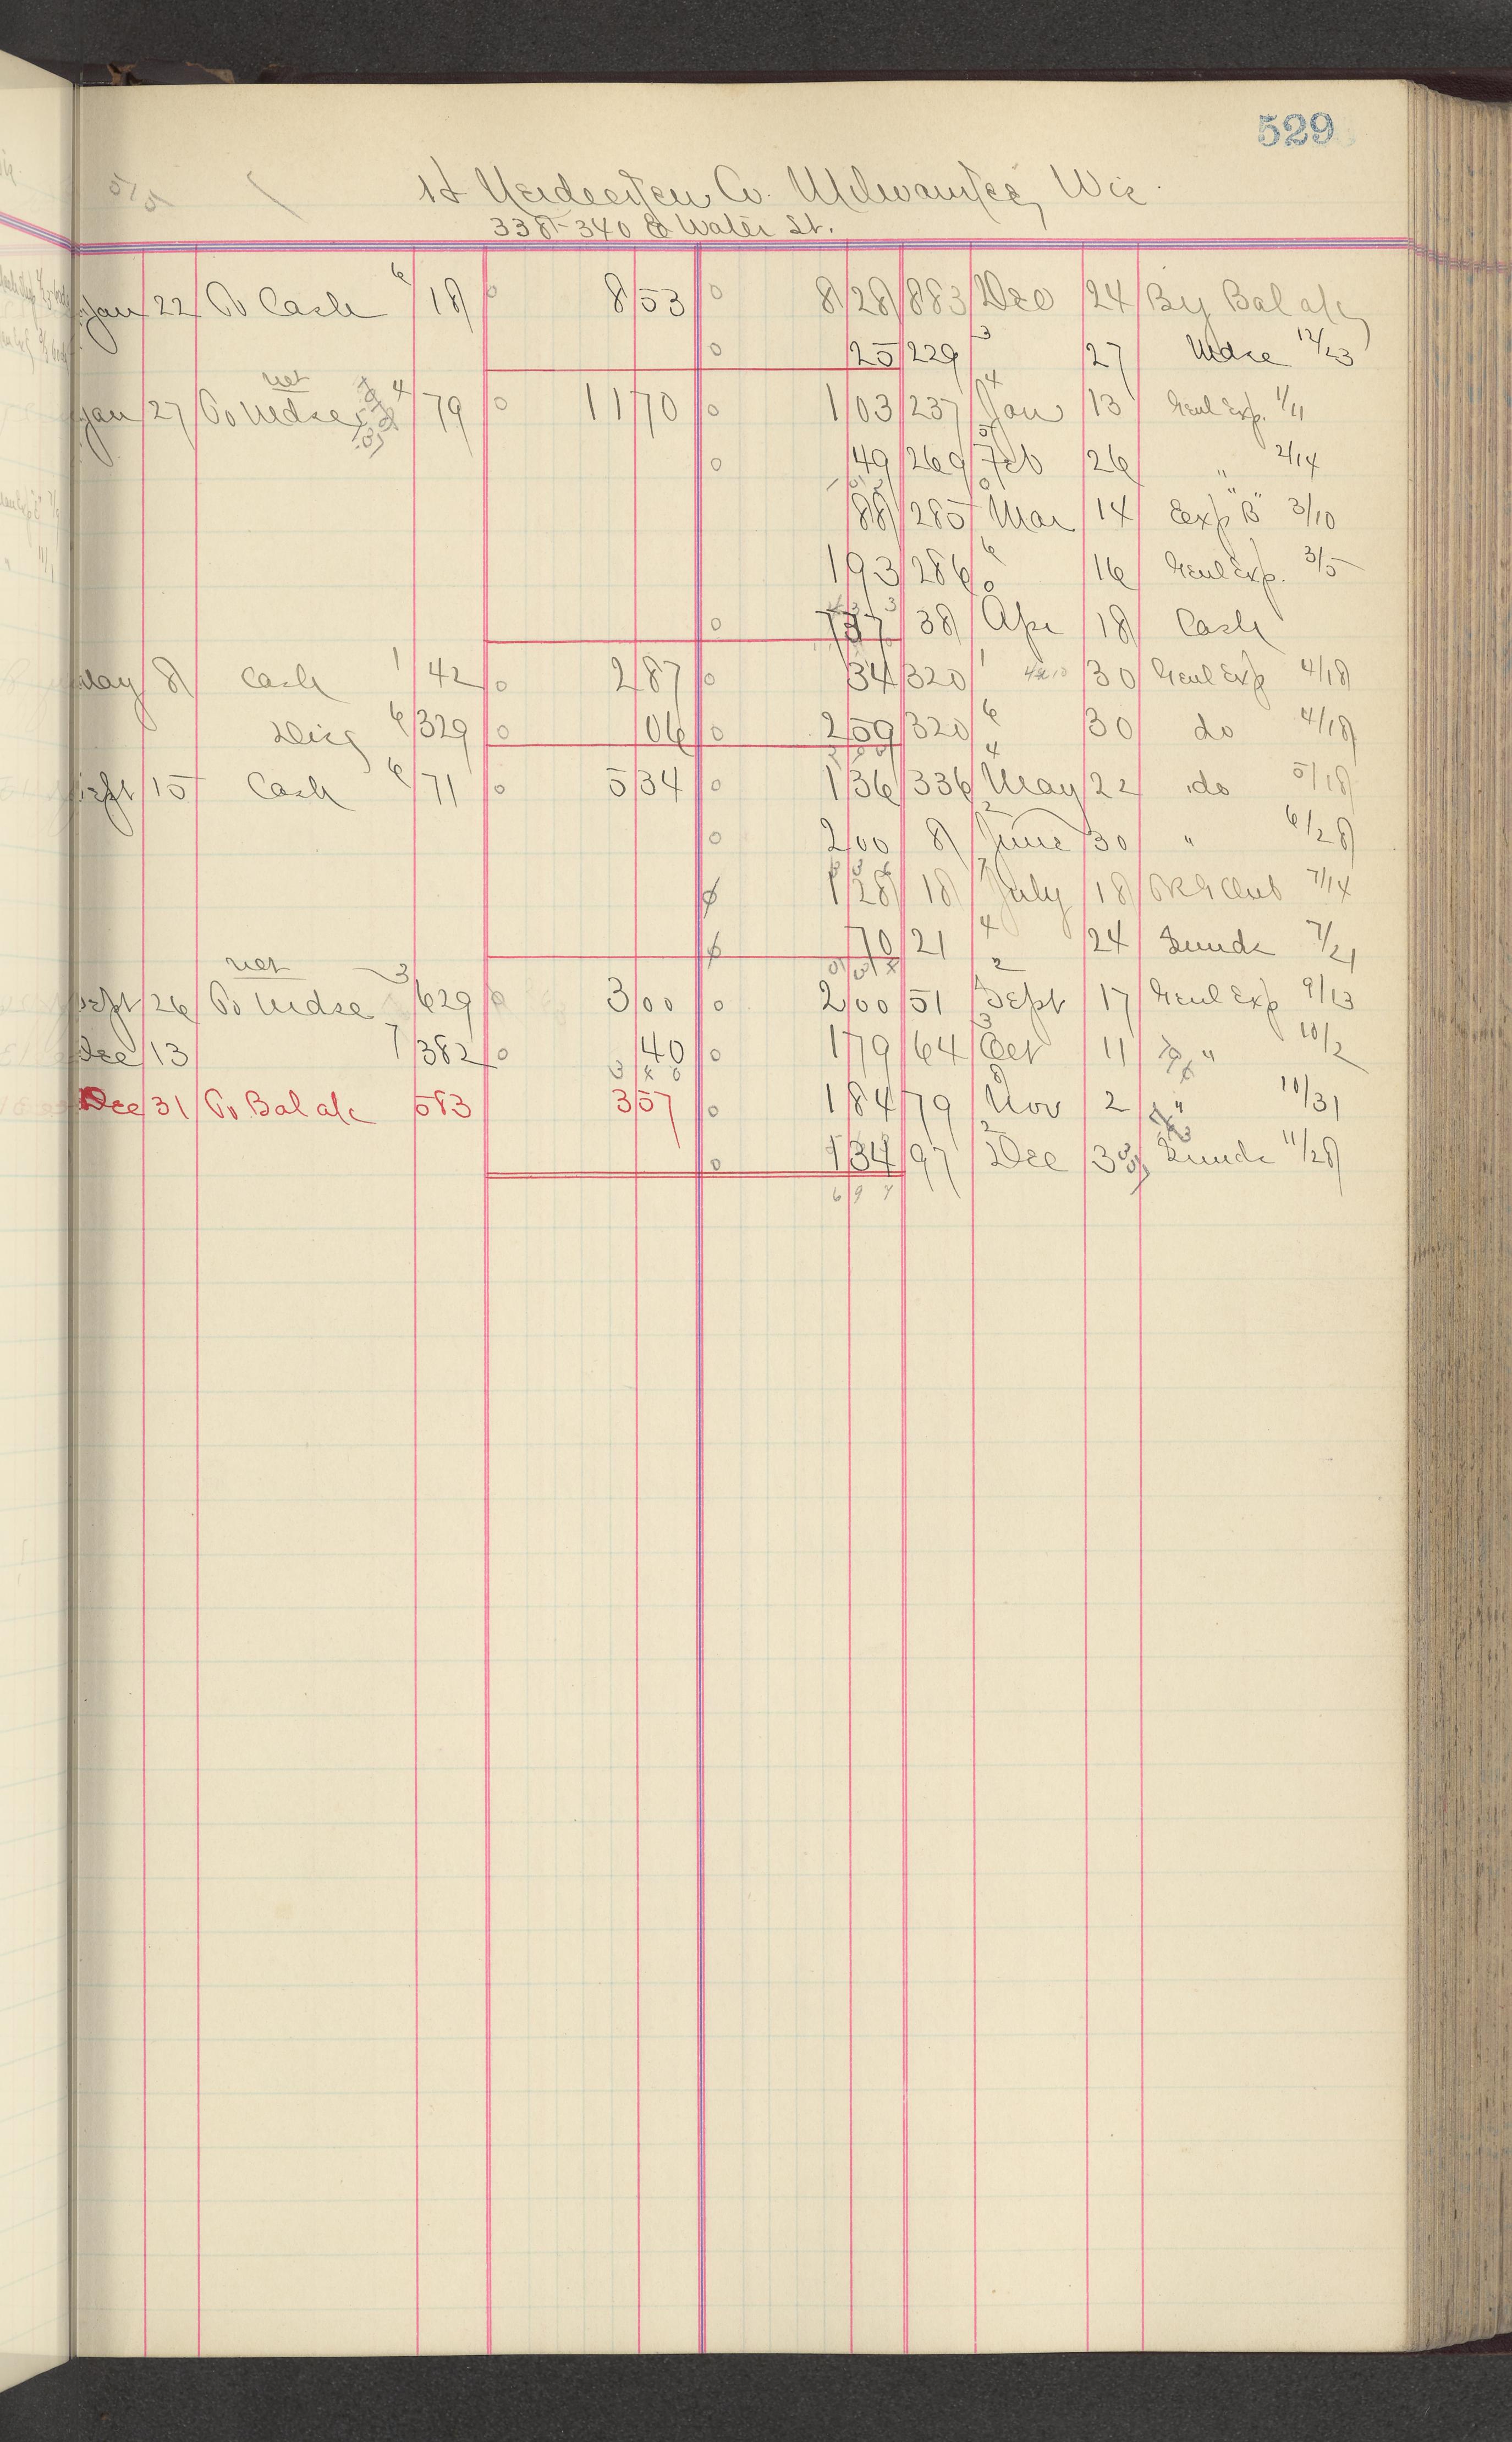 529
Co. Milwaukee, Wis
338-340 E Water St.
Jan 22 To Cash 6 18 8 53 8 28 883 Dec 24 By Bal a/c
25 229 3 27 Mdse 12/23
net
Jan 27 To Mdse 4 79 11 70 1 03 237 4 Jan 13 Genl Exp. 1/11
49 269 5 Feb 26 " 2/14
88 285 Mar 14 Exp "B" 3/10
1 93 286 6 16 Genl Exp. 3/5
38 Apr 18 Cash
May 8 Cash 1 42 2 87 34 320 1 30 Genl Exp 4/18
Disc 6 329 06 2 59 320 6 30 do 4/18
Sept 15 Cash 6 71 5 34 1 36 336 4 May 22 do 5/18
2 00 8 2 June 30 " 6/28
1 28 18 7 July 18 7/14
70 21 4 24 Sunds 7/21
net
Sept 26 To Mdse 3 629 3 00 2 00 51 2 Sept 17 Genl Exp 9/13
Dec 13 7 382 40 1 79 64 3 Oct 11 " 10/2
Dec 31 To Bal a/c 583 3 57 1 84 79 8 Nov 2 " 10/31
1 34 97 2 Dec Sunds 11/28
6 9 7